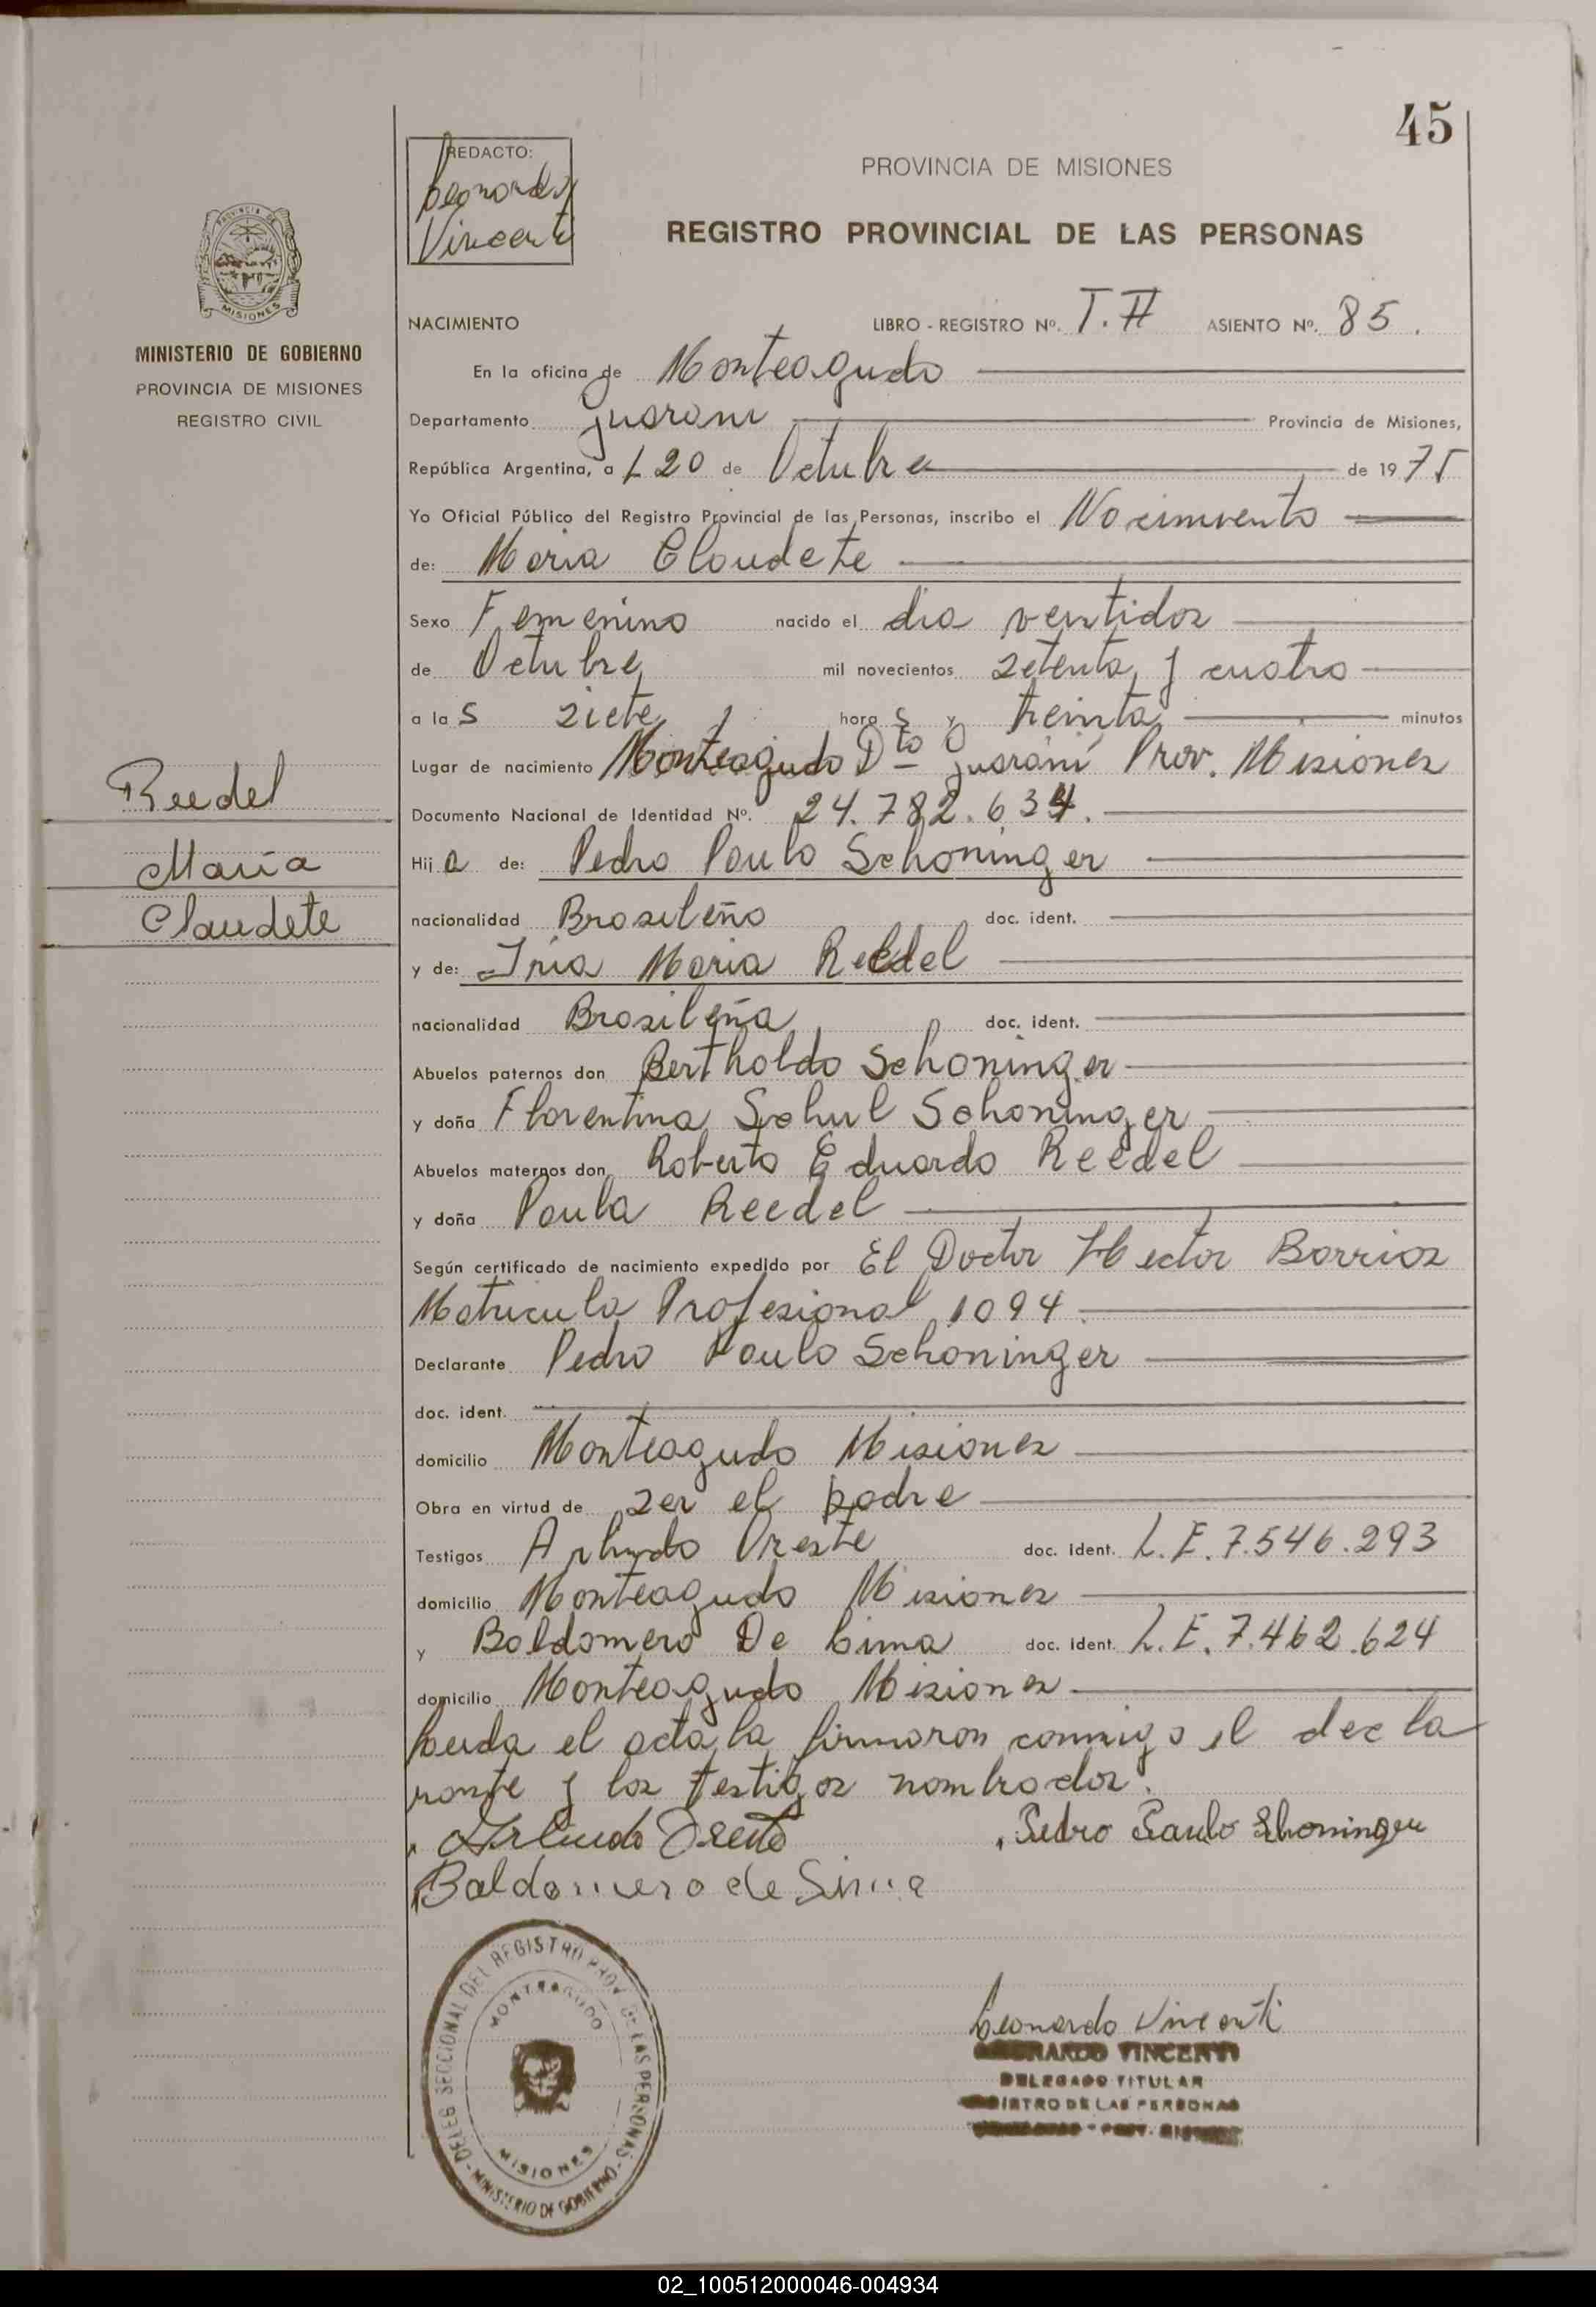 45
REDACTO:
Leonardo
Vincenti
PROVINCIA DE MISIONES
REGISTRO PROVINCIAL DE LAS PERSONAS
PROVINCIA DE
MISIONES
MINISTERIO DE GOBIERNO
PROVINCIA DE MISIONES
REGISTRO CIVIL
NACIMIENTO LIBRO - REGISTRO Nº. T. II ASIENTO Nº. 85.
En la oficina de Monteagudo
Departamento Guarani Provincia de Misiones,
República Argentina, a L 20 de Octubre de 1975
Yo Oficial Público del Registro Provincial de las Personas, inscribo el Nacimiento
de: Maria Claudete
Sexo Femenino nacido el dia ventidos
de Octubre mil novecientos setenta y cuatro
a las siete horas y treinta minutos
Lugar de nacimiento Monteagudo Dto Guarani Prov. Misiones
Documento Nacional de Identidad Nº. 24.782.634.
Hija de: Pedro Paulo Schoninger
nacionalidad Brasileño doc. ident.
y de: Iria Maria Reedel
nacionalidad Brasileña doc. ident.
Abuelos paternos don Bertholdo Schoninger
y doña Florentina Schul Schoninger
Abuelos maternos don Roberto Eduardo Reedel
y doña Paula Reedel
Según certificado de nacimiento expedido por El Doctor Hector Barrios
Matricula Profesional 1094.
Declarante Pedro Paulo Schoninger
doc. ident.
domicilio Monteagudo Misiones
Obra en virtud de ser el padre
Testigos Arlindo Oreste doc. ident. L.E. 7.546.293
domicilio Monteagudo Misiones
y Baldomero De Lima doc. ident. L.E. 7.462.624
domicilio Monteagudo Misiones
Leida el acta la firmaron conmigo el decla
rante y los testigos nombrados.
Arlindo Oreste Pedro Paulo Shoninger
Baldomero de Sima
Reedel
María
Claudete
DELEG. SECCIONAL DEL REGISTRO PROV. DE LAS PERSONAS
MONTEAGUDO
MISIONES
MINISTERIO DE GOBIERNO
Leonardo Vincenti
LEONARDO VINCENTI
DELEGADO TITULAR
REGISTRO DE LAS PERSONAS
02_100512000046-004934